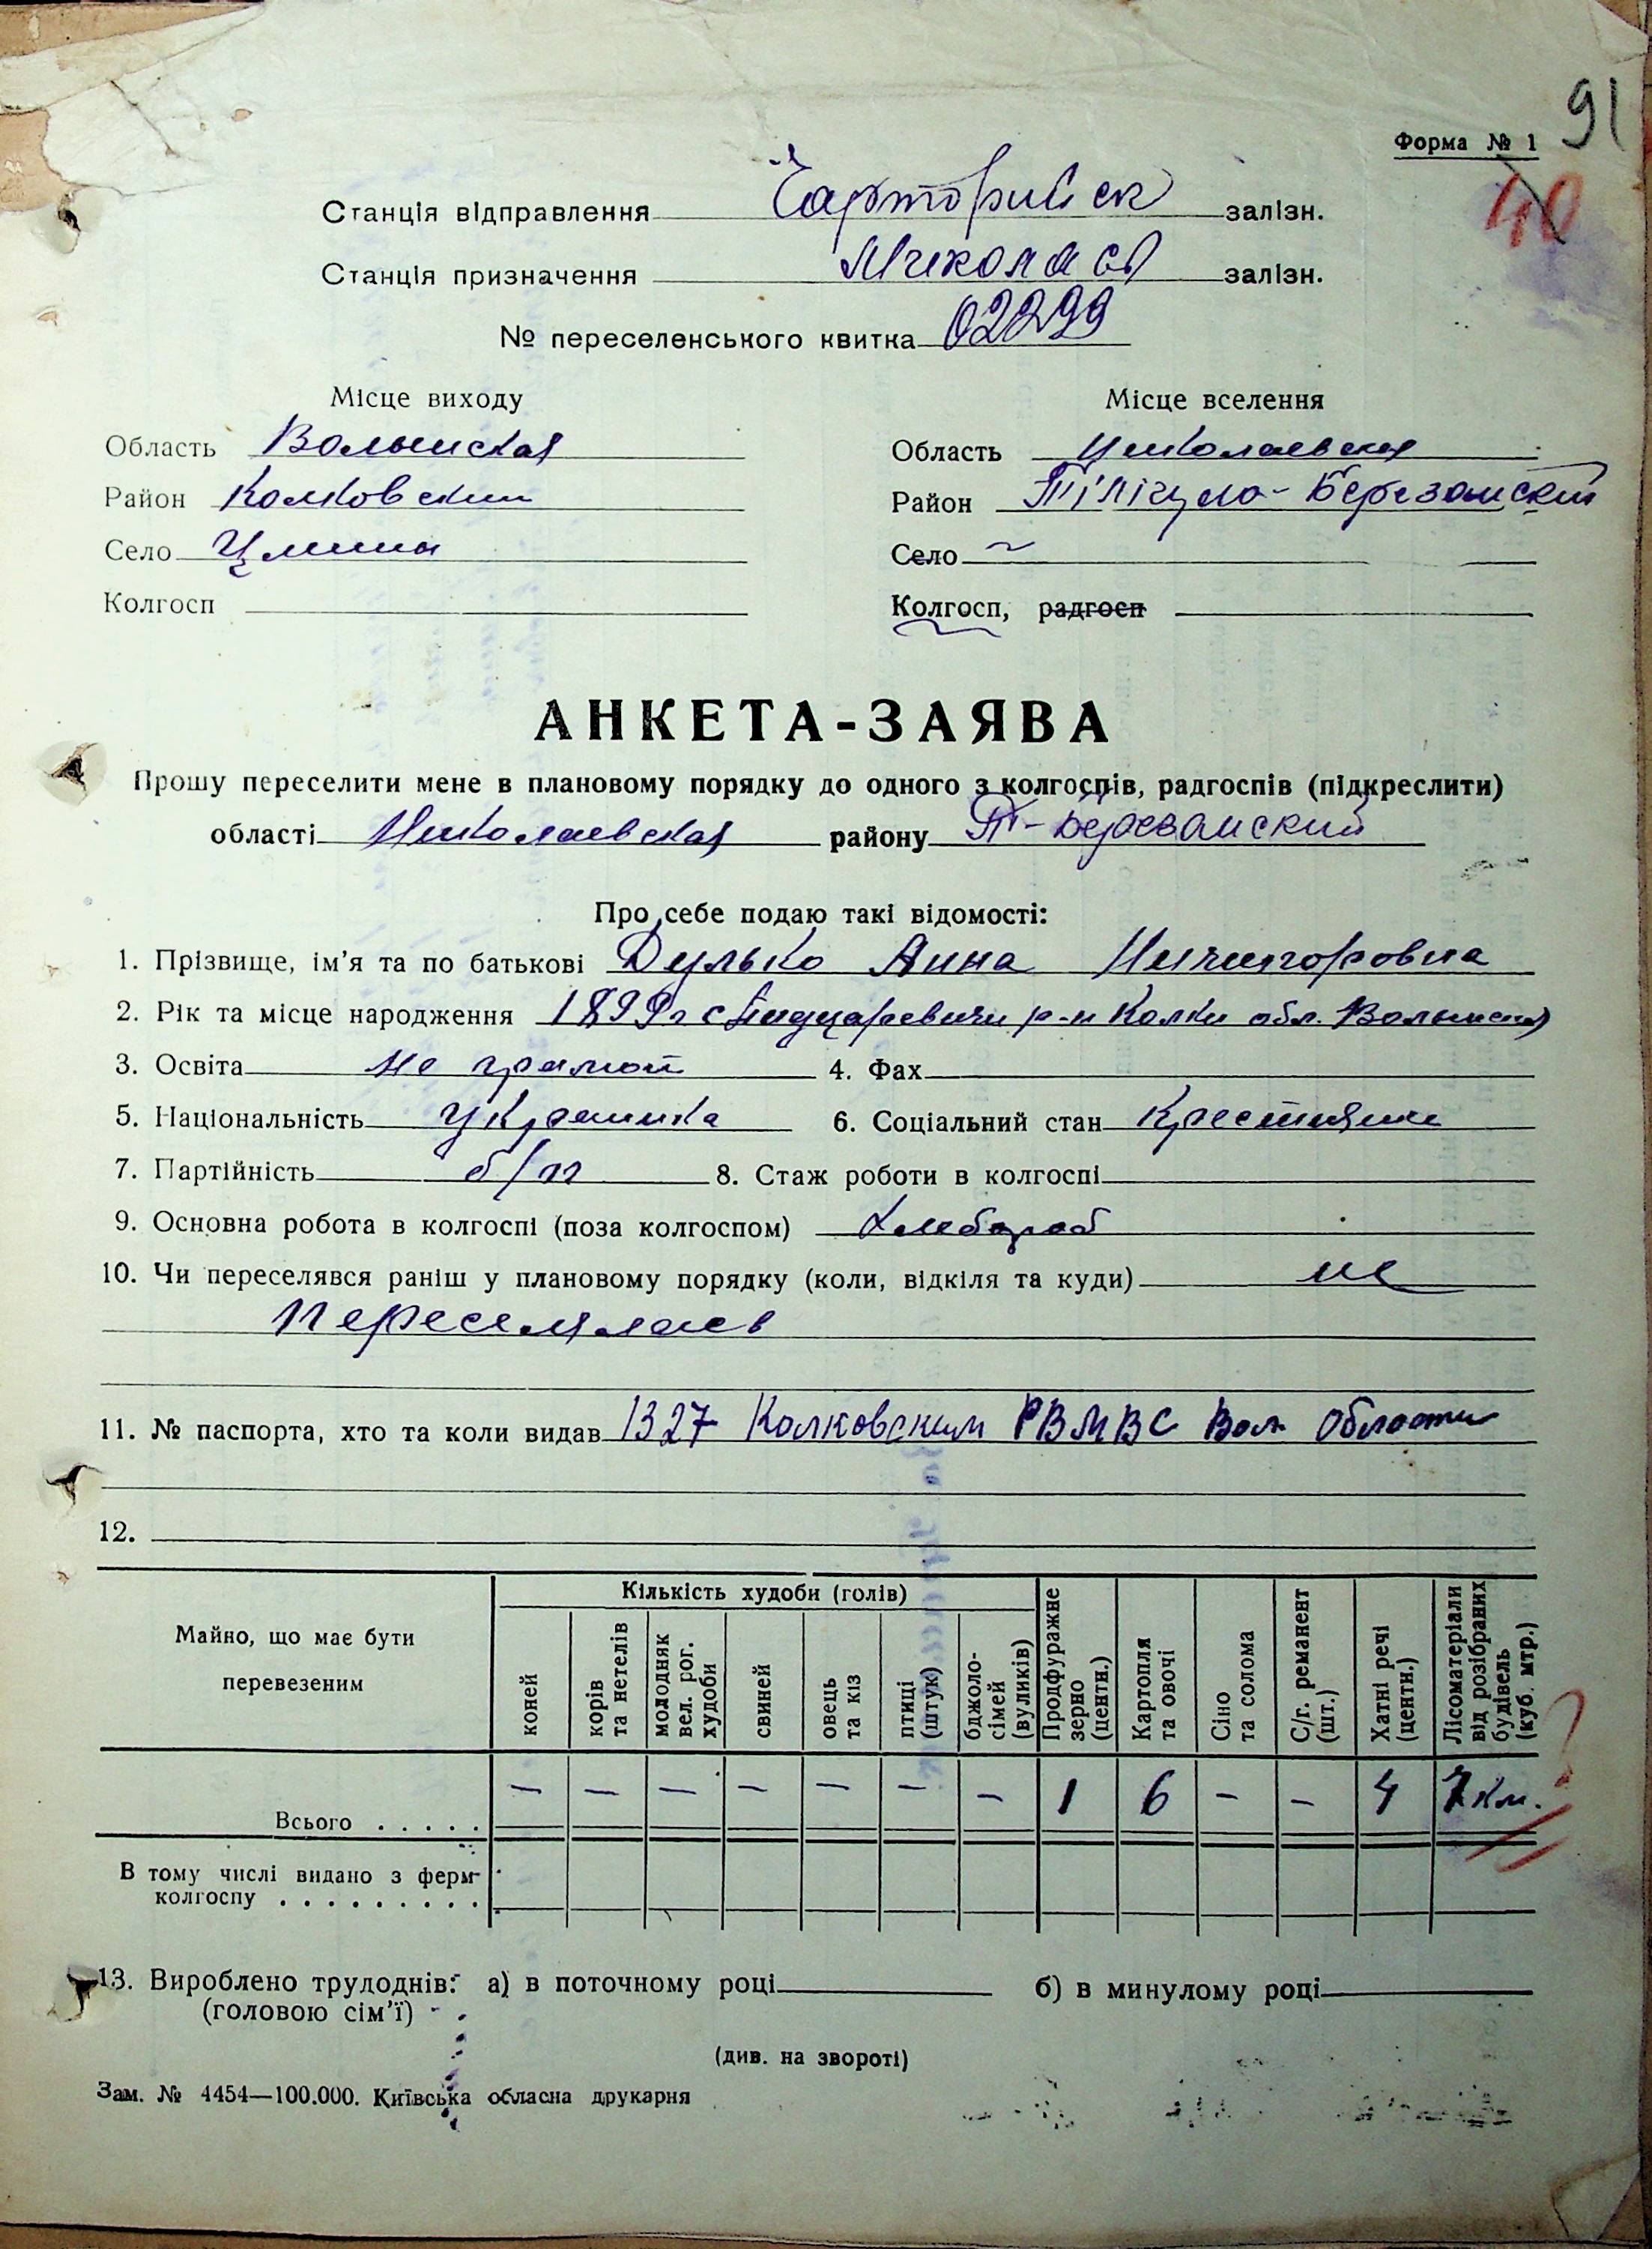 91
Форма № 1
40
Станція відправлення Чарторийск залізн.
Станція призначення Миколаєв залізн.
№ переселенського квитка 02299
Місце виходу Місце вселення
Область Волынская Область Николаевская
Район Колковский Район Тілігуло-Березанский
Село Цмины Село
Колгосп Колгосп, радгосп
АНКЕТА-ЗАЯВА
Прошу переселити мене в плановому порядку до одного з колгоспів, радгоспів (підкреслити)
області Николаевская району Т-Березанский
Про себе подаю такі відомості:
1. Прізвище, ім'я та по батькові Дулько Анна Ничипоровна
2. Рік та місце народження 1899 г с р-н Колки обл. Волынская
3. Освіта не грамот 4. Фах
5. Національність Украинка 6. Соціальний стан Крестьянка
7. Партійність б/п 8. Стаж роботи в колгоспі
9. Основна робота в колгоспі (поза колгоспом) Хлебороб
10. Чи переселявся раніш у плановому порядку (коли, відкіля та куди) не
переселялась
11. № паспорта, хто та коли видав 1327 Колковским РВМВС Вол. Области
12.
Майно, що має бути перевезеним
Кількість худоби (голів)
коней
корів та нетелів
молодняк вел. рог. худоби
свиней
овець та кіз
птиці (штук)
бджоло-сімей (вуликів)
Продфуражне зерно (центн.)
Картопля та овочі
Сіно та солома
С/г. реманент (шт.)
Хатні речі (центн.)
Лісоматеріали від розібраних будівель (куб. мтр.)
Всього . . . . . — — — — — — — 1 6 — — 4 7 км. ?
В тому числі видано з ферм
колгоспу . . . . . . . . .
13. Вироблено трудоднів: а) в поточному році б) в минулому році
(головою сім'ї)
(див. на звороті)
Зам. № 4454—100.000. Київська обласна друкарня